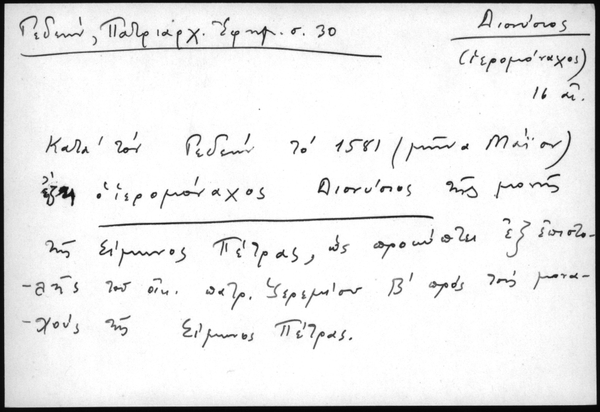 Γεδεών, Πατριάρχ. Εφημ. σ. 30
Διονύσιος
(ἱερομόναχος)
16 αἰ.
Κατά τόν Γεδεών τό 1581 (μῆνα Μάϊον)
ἔζη ὁ ἱερομόναχος Διονύσιος τῆς μονῆς
τῆς Σίμωνος Πέτρας, ὡς προκύπτει ἐξ ἐπιστο-
-λῆς τοῦ οἰκ. πατρ. Ἱερεμίου Β' πρός τούς μονα-
-χούς τῆς Σίμωνος Πέτρας.